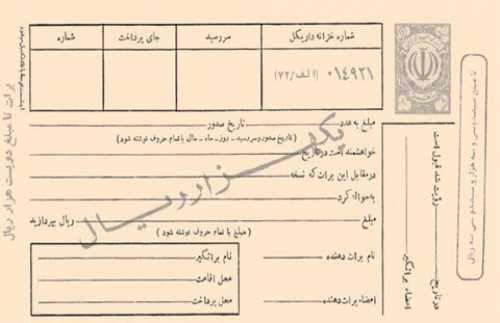 شماره خزانه داریکل
سررسید
جای پرداخت
شماره
۰۱۴۹۲۱ (الف/۷۲)
مبلغ به عدد تاریخ صدور
(تاریخ صدور و سررسید - روز - ماه - سال با تمام حروف نوشته شود)
خواهشمند است در تاریخ
در مقابل این برات که نسخه
به حواله کرد
مبلغ ریال بپردازید
(مبلغ با تمام حروف نوشته شود)
نام برات دهنده
امضاء برات دهنده
نام براتگیر
محل اقامت
محل پرداخت
یکهزار ریال
برات تا مبلغ دویست هزار ریال
رویت شد قبول است
در تاریخ
امضاء براتگیر